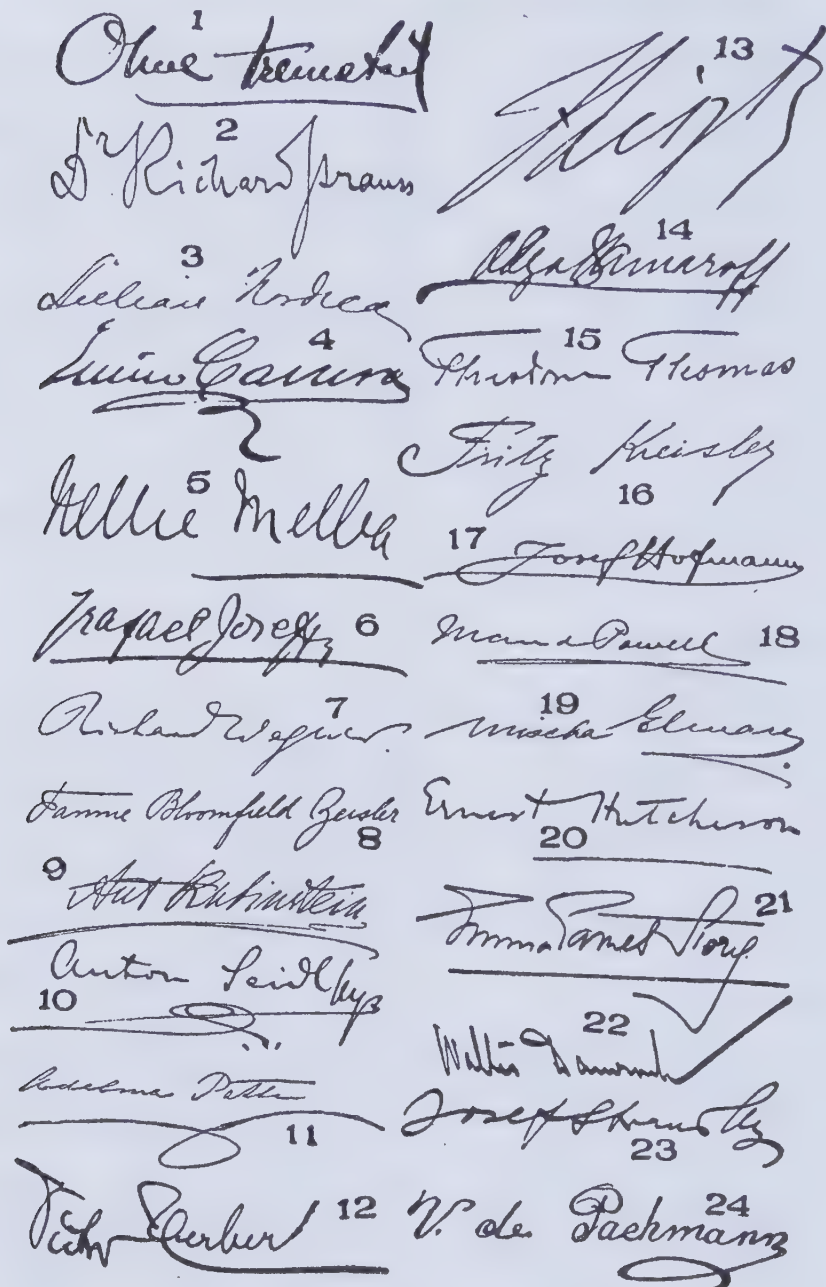 1
Olive Fremstad
2
Dr Richard Strauss
3
Lillian Nordica
4
Enrico Caruso
5
Nellie Melba
Rafael Joseffy 6
7
Richard Wagner.
Fannie Bloomfield Zeisler
8
9
Ant Rubinstein
Anton Seidl
10
Adelina Patti
11
Victor Herbert 12
13
F Liszt
14
Olga Samaroff
15
Theodore Thomas
Fritz Kreisler
16
17 Josef Hofmann
Maud Powell 18
19
Mischa Elman
Ernest Hutcheson
20
21
Emma Eames Story
22
Walter Damrosch
Josef Stransky
23
24
V. de Pachmann